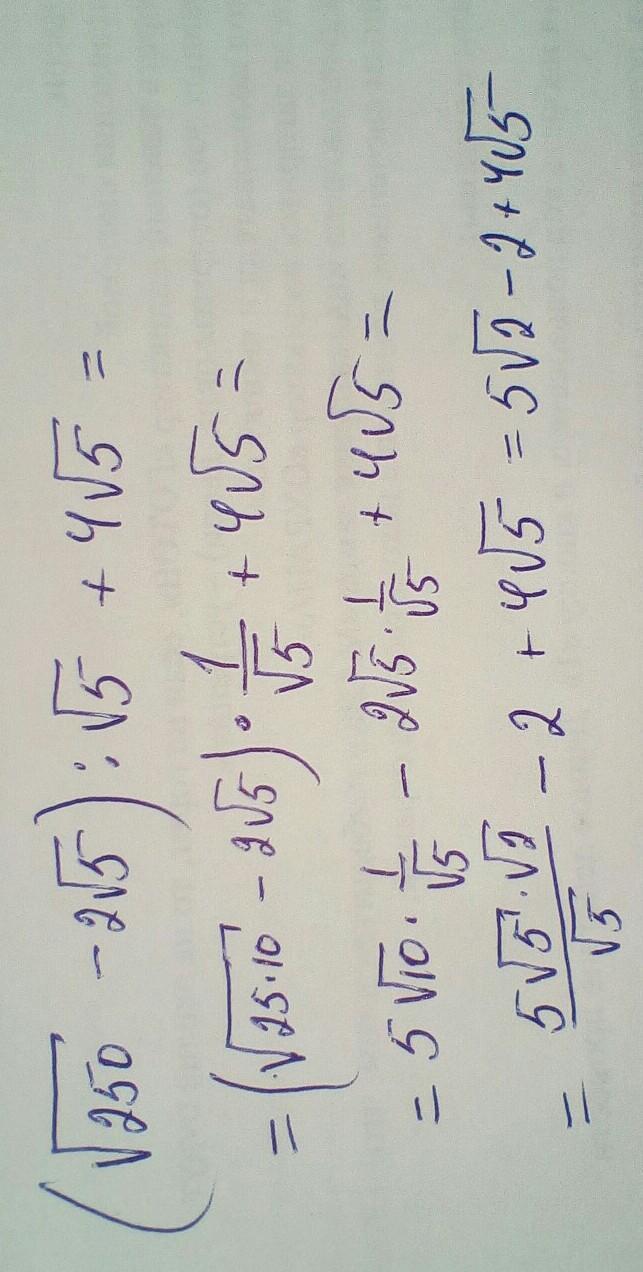 (√250 - 2√5) : √5 + 4√5 =
= (√25·10 - 2√5) · 1/√5 + 4√5 =
= 5√10 · 1/√5 - 2√5 · 1/√5 + 4√5 =
= 5√5·√2/√5 - 2 + 4√5 = 5√2 - 2 + 4√5